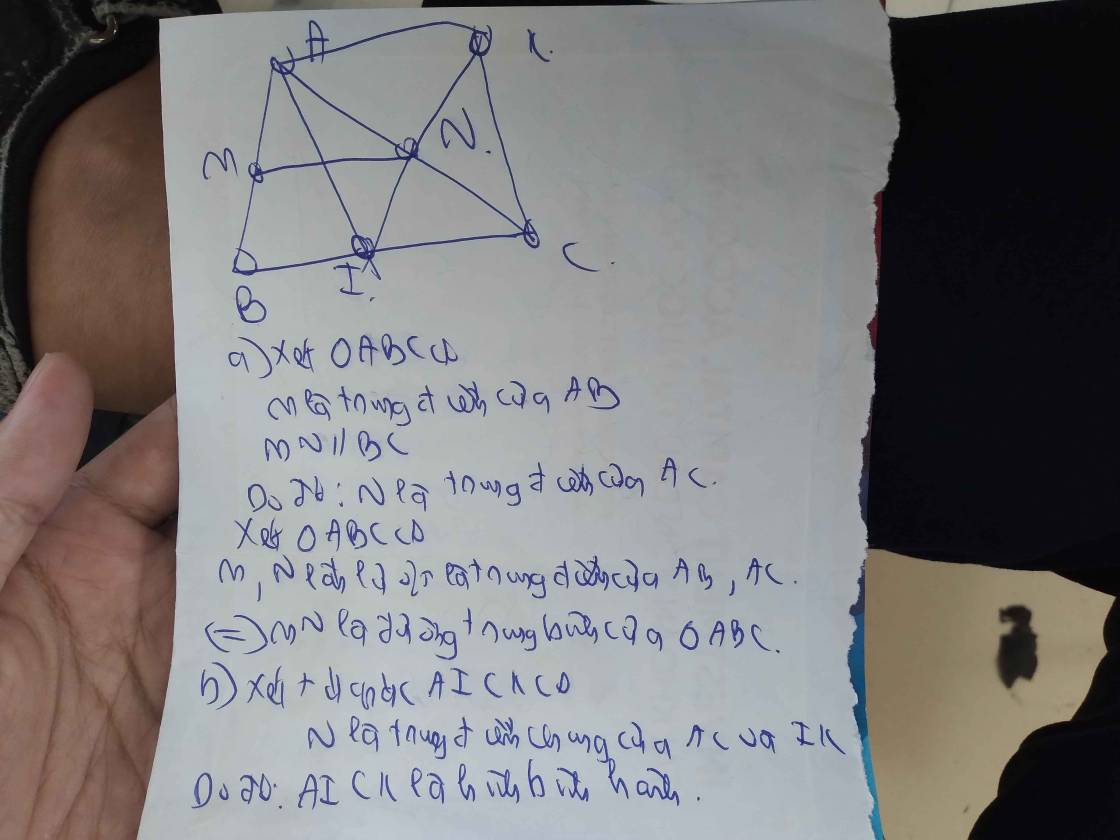 A
K.
M
N.
I.
C.
B
a) Xét ΔABC có
M là trung điểm của AB
MN // BC
Do đó: N là trung điểm của AC.
Xét ΔABC có
M, N lần lượt là trung điểm của AB, AC.
(=) MN là đường trung bình của ΔABC.
b) Xét tứ giác AICK có
N là trung điểm chung của AC và IK
Do đó: AICK là hình bình hành.